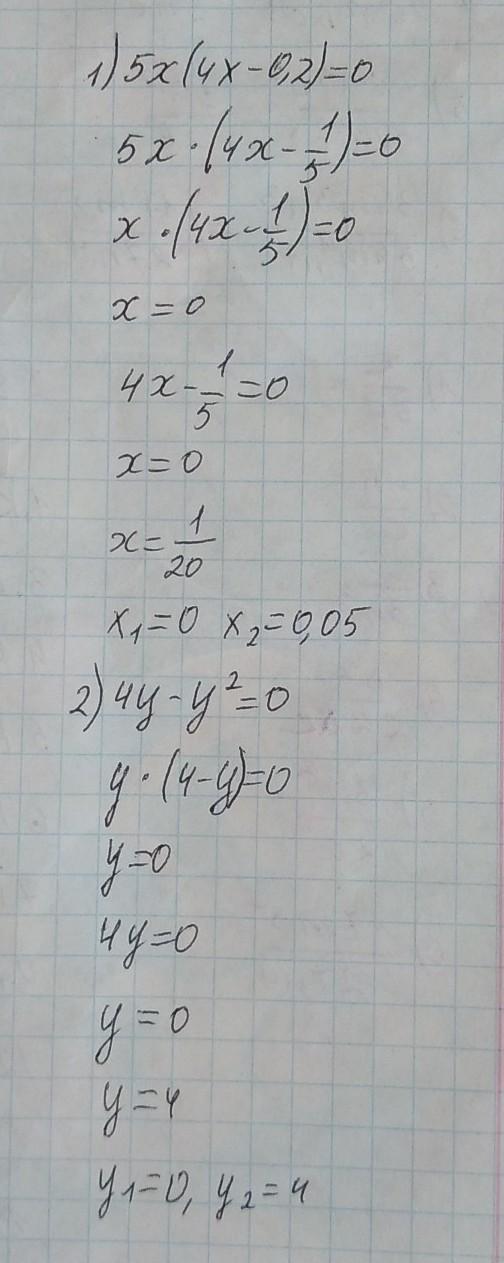 1) 5x(4x-0,2)=0
5x·(4x-1/5)=0
x·(4x-1/5)=0
x=0
4x-1/5=0
x=0
x=1/20
x₁=0 x₂=0,05
2) 4y-y²=0
y·(4-y)=0
y=0
4y=0
y=0
y=4
y₁=0, y₂=4